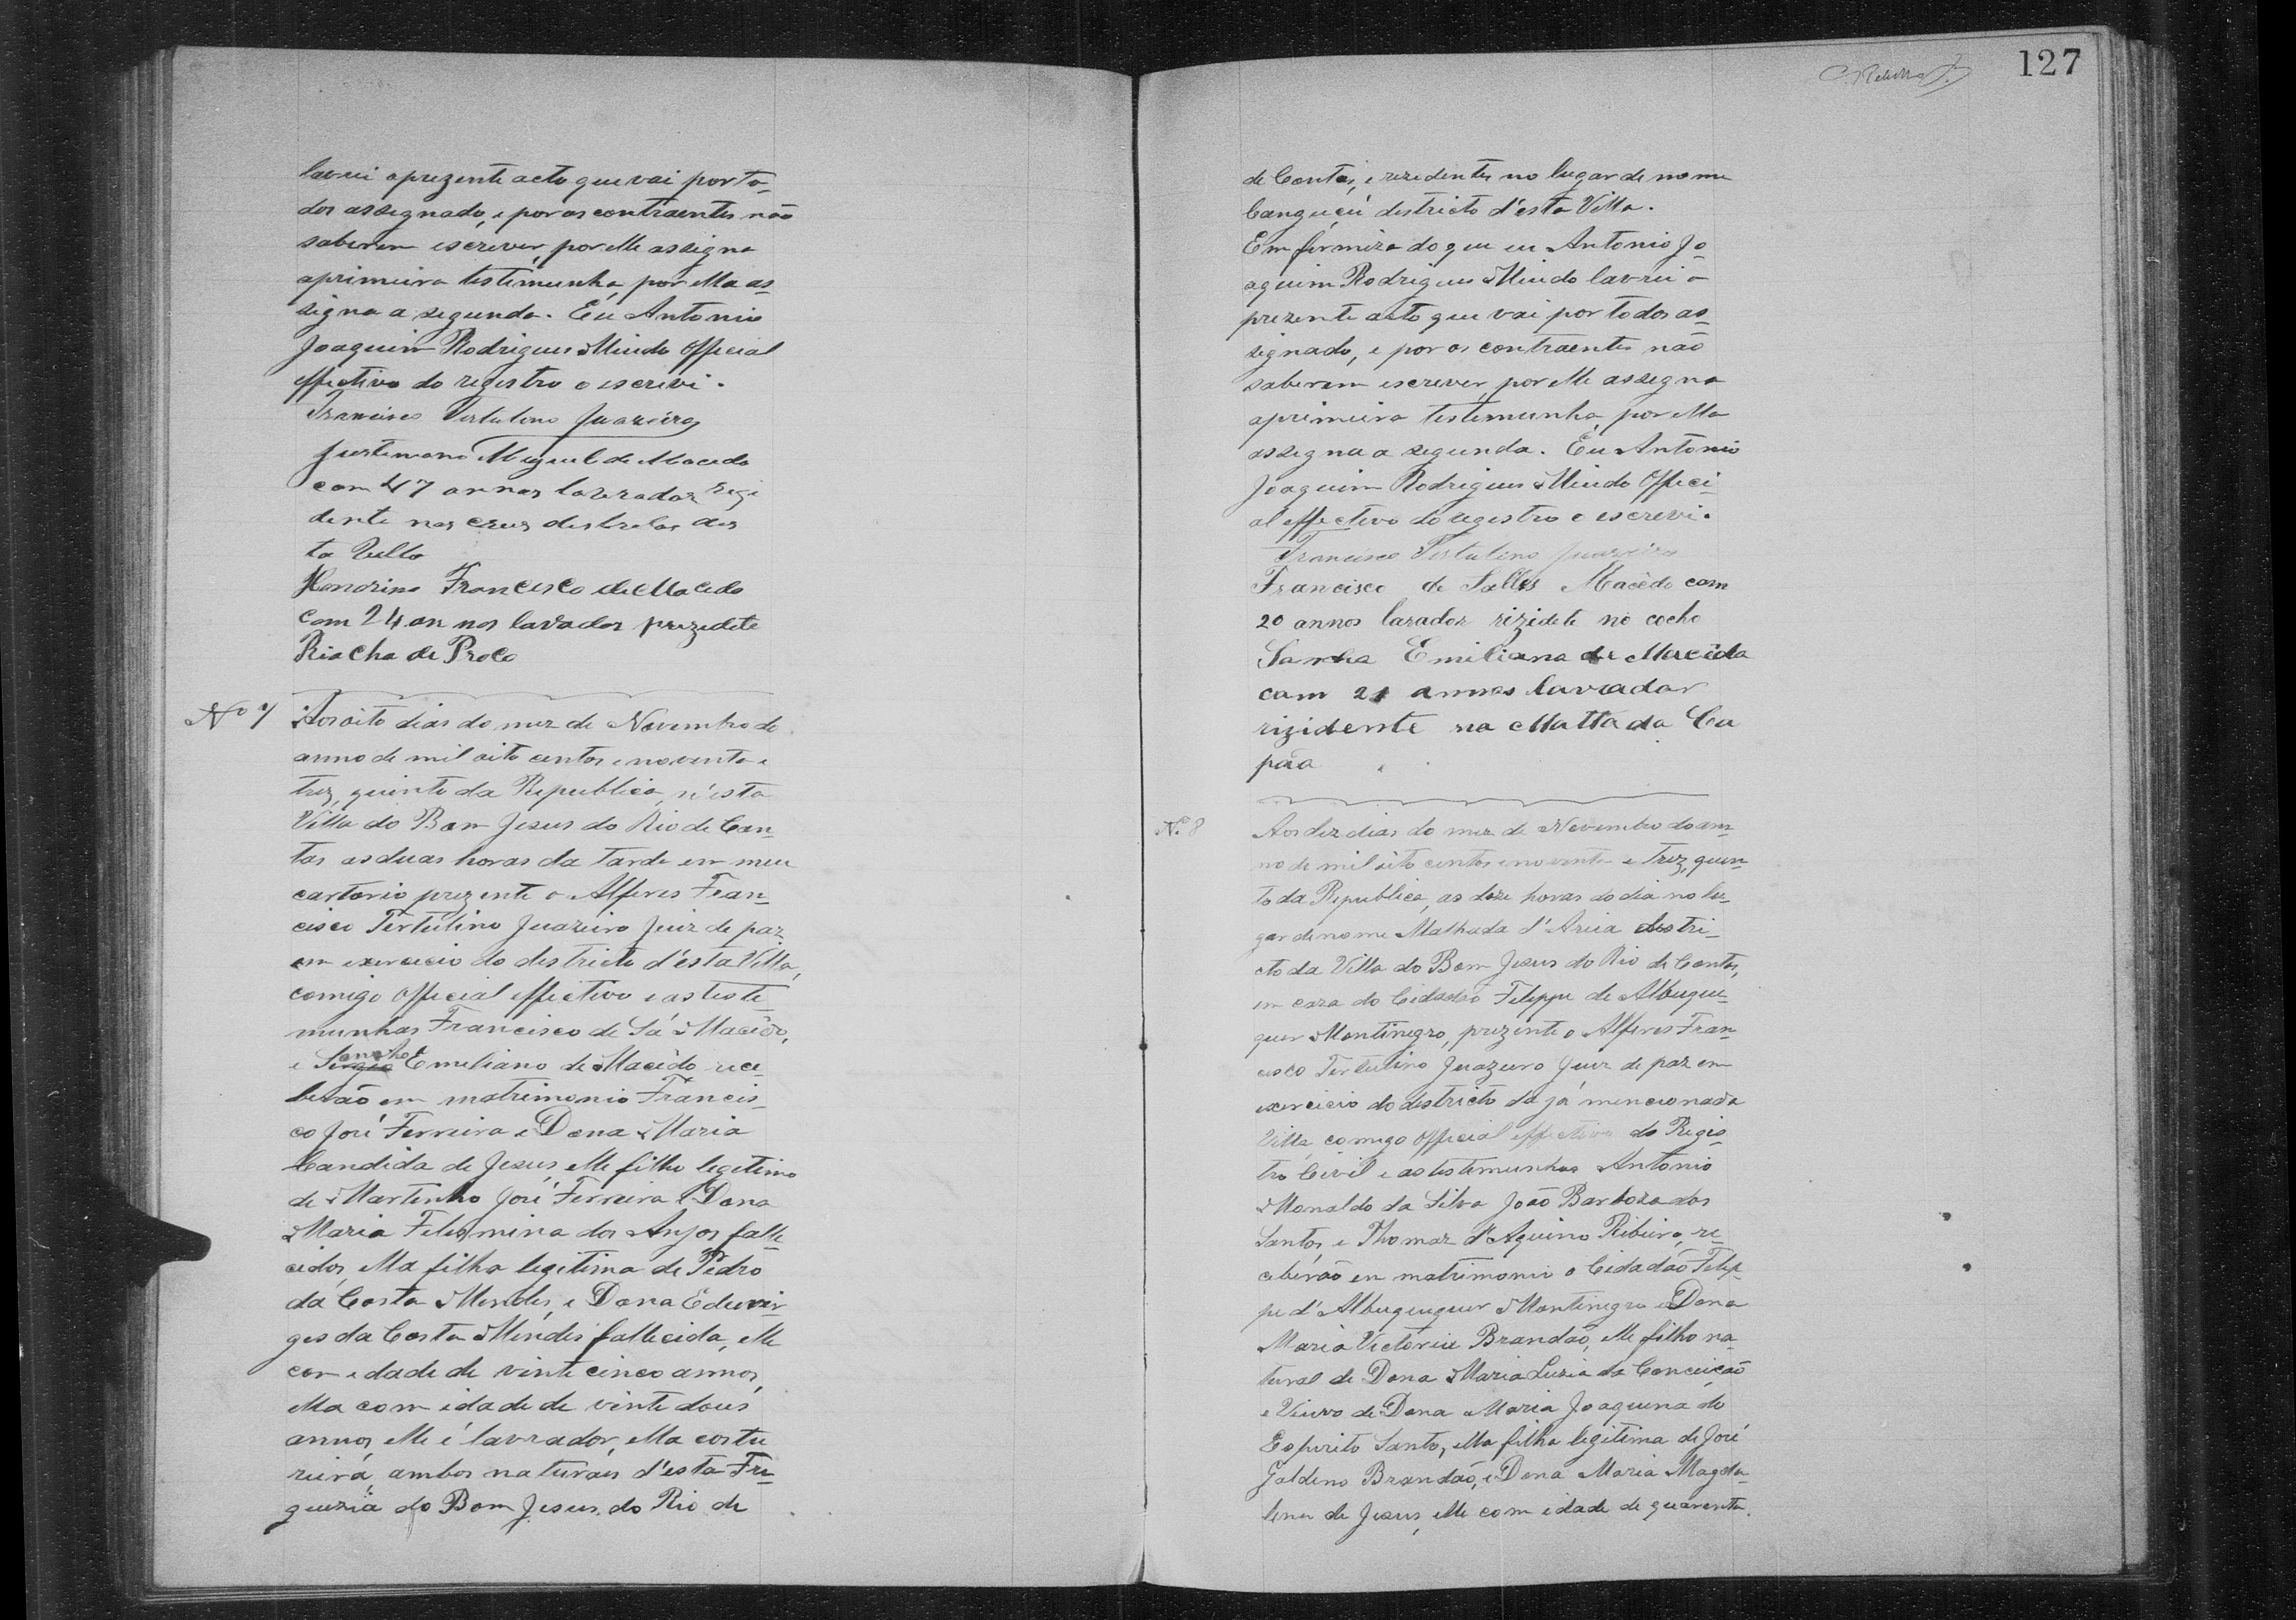 lavrei o prezente acto que vai por to-
dos assegnado, e por os contraentes não
saberem escrever, por elle assigna
a primeira testimunha, por ella as-
signa a segunda. Eu Antonio
Joaquim Rodrigues Mindo Official
effectivo do registro o escrevi.
Francisco Tertulino Juazeiro
Justiniano Miguel de Macedo
com 47 annos lavrador rezi
dente nas destrito des
ta Villa
Honorino Francisco de Macedo
com 24 an nos lavador prezidete
Riacha de
Nº 7
Aos oito dias do mez de Novembro do
anno de mil oito centos e noventa e
trez, quinto da Republica, n'esta
Villa do Bom Jesus do Rio de Con-
tas as duas horas da tarde em meu
cartorio prezente o Alferes Fran-
cisco Tertulino Juazeiro Juiz de paz
em exercicio do destricto d'esta Villa,
comigo official effectivo e as teste
munhas Francisco de Sá Macêdo,
e Sancho Emeliano de Macêdo rece
berão em matrimonio Francis-
co José Ferreira e Dona Maria
Candida de Jesus, elle filho legitimo
de Martinho José Ferreira e Dona
Maria Felismina dos Anjos falle
cidos, ella filha legitima de Pedro
da Costa Mendes, e Dona Eduvir-
ges da Costa Mendes fallecida, elle
com edade de vinte cinco annos,
ella com idade de vinte dous
annos, elle é lavrador, ella costu
reira, ambos naturais d'esta Fre-
guezia do Bom Jesus do Rio de
127
de Contas, e rezedentes no lugar de nome
Canguçú destricto d'esta Villa.
Em firmeza do que eu Antonio Jo-
aquim Rodrigues Mindo lavrei o
prezente acto que vai por todos as-
signado, e por os contraentes não
saberem escrever, por elle assegna
a primeira testemunha, por ella
assegna a segunda. Eu Antonio
Joaquim Rodrigues Mindo Offici-
al effectivo do registro o escrevi.
Francisco Tertulino Juazeiro
Francisco de Salles Macêdo com
20 annos larador rizidete no cocho
Sancha Emiliana de Macêdo
com 21 annos lavrador
rizidente na Matta da Ca
pão
N.º 8
Aos dez dias do mez de Novembro do an-
no de mil oito centos e noventa e trez, quin-
to da Republica, as doze horas do dia no lu-
gar de nome Malhada d'Areia destri-
cto da Villa do Bom Jesus do Rio de Contas,
em caza do Cidadão Felippe de Albuque-
quer Montinegro, prezente o Alferes Fran-
cisco Tertulino Juazeiro Juiz de paz em
exercicio do destricto da já mencionada
Villa, comigo official effectivo do Regis-
tro Civil e as testimunhas Antonio
Monaldo da Silva João Barboza dos
Santos, e Thomaz d'Aquino Ribeiro, re-
ceberão em matrimonio o Cidadão Felip-
pe d'Albuquequer Montinegro e Dona
Maria Victoria Brandão, elle filho na-
tural de Dona Maria Luzia da Conceição
e Viuvo de Dona Maria Joaquina do
Espirito Santo, ella filha legitima de José
Galdino Brandão, e Dona Maria Magda-
lena de Jesus, elle com edade de quarenta